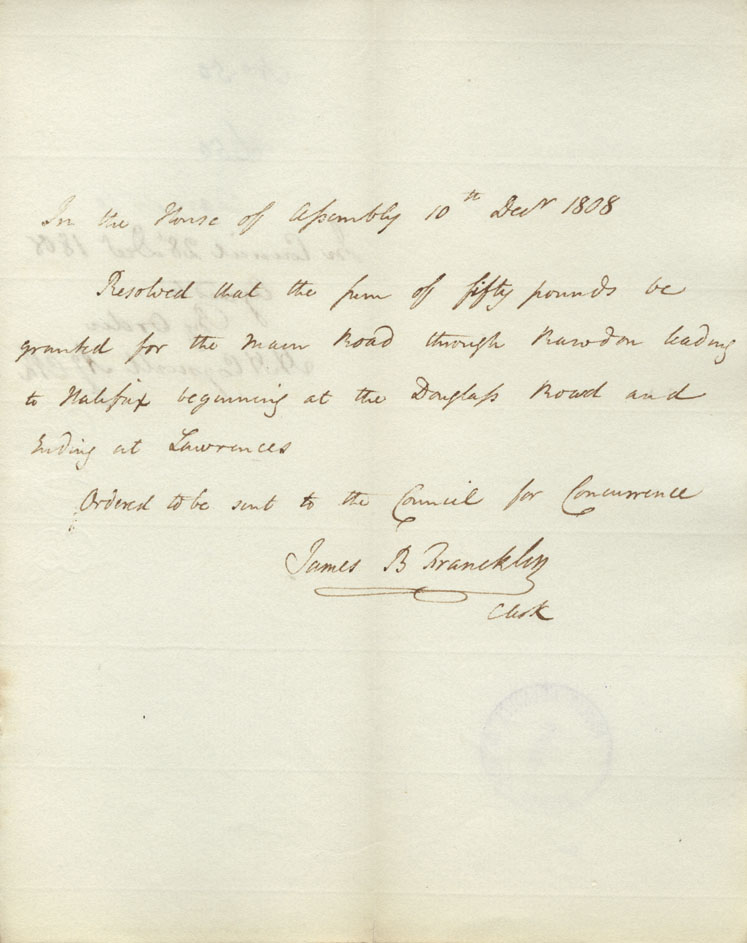 In the House of Assembly 10th Decr 1808
Resolved that the sum of fifty pounds be
granted for the Main Road through Rawdon leading
to Halifax beginning at the Douglass Road and
Ending at Lawrences
Ordered to be sent to the Council for Concurrence
James B Franckling
Clerk